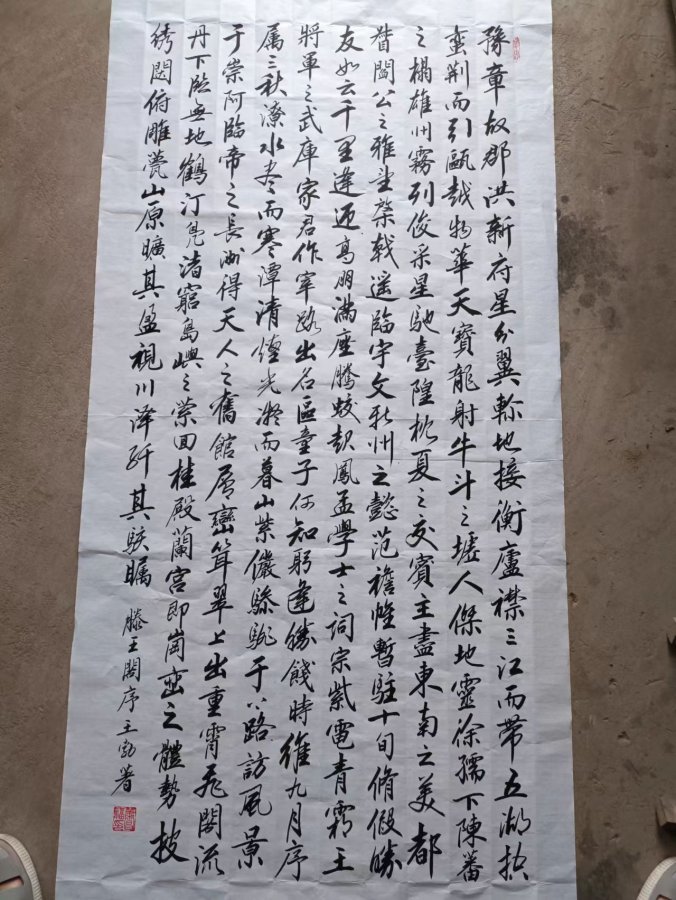 豫章故郡洪新府星分翼軫地接衡廬襟三江而帶五湖控
蛮荆而引甌越物華天寶龍射牛斗之墟人傑地靈徐孺下陳蕃
之榻雄州霧列俊采星馳臺隍枕夏之交賓主盡東南之美都
督閻公之雅望棨戟遥臨宇文新州之懿范襜帷暫駐十旬脩假勝
友如云千里逢迎高朋滿座騰蛟起鳳孟學士之詞宗紫電青霜王
將軍之武庫家君作宰路出名區童子何知躬逢勝餞時維九月序
属三秋潦水盡而寒潭清煙光凝而暮山紫儼驂騑于八路訪風景
于崇阿臨帝之長洲得天人之舊館層巒聳翠上出重霄飛閣流
丹下臨無地鶴汀凫渚窮島嶼之縈回桂殿蘭宫即崗巒之體勢披
绣闼俯雕甍山原曠其盈視川澤紆其駭矚
滕王閣序王勃著